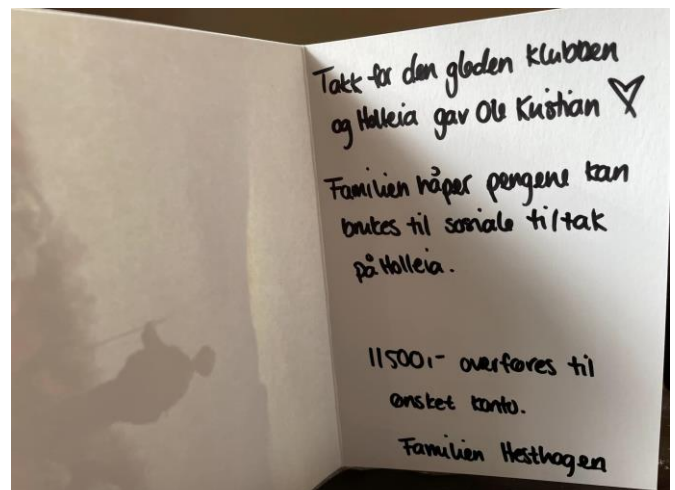 Takk for den gleden klubben
og Holleia gav Ole Kristian
Familien håper pengene kan
brukes til sosiale tiltak
på Holleia.
11500,- overføres til
ønsket konto.
Familien Hesthagen